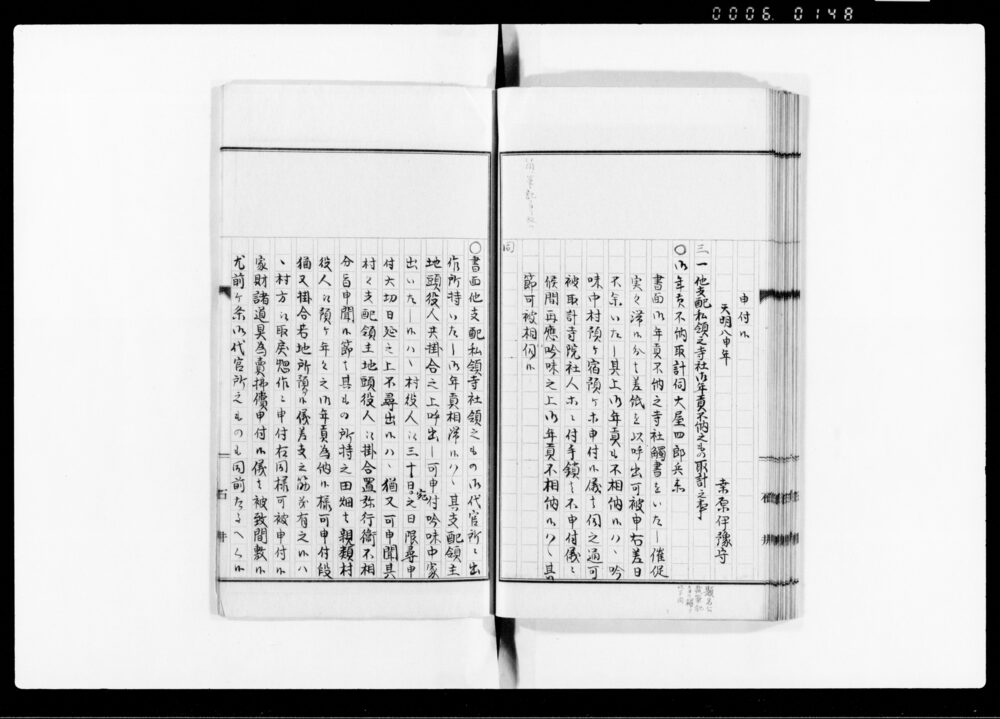 0006. 0148
申付候
天明八申年
桒原伊豫守
三一他支配私領之寺社御年貢不納之もの取計之事
〇御年貢不納取計伺大屋四郎兵衛
書面御年貢不納之寺社觸書をいたし催促
実々滞候分も差紙を以呼出可被申右差日
不参いたし其上御年貢も不相納候ハヽ吟
味中村預ケ宿預ケ等申付候儀も伺之通可
被取計寺院社人等は付寺鎖は不申付儀に
候間再應吟味之上御年貢不相納候ハヽ其
節可被相伺候
同
〇書面他支配私領寺社領之もの御代官所に出
作所持いたし御年貢相滞候ハヽ其支配領主
地頭役人共掛合之上呼出し可申付吟味中家
出いたし候ハヽ村役人に三十日宛之日限尋申
付六切日延之上不尋出候ハヽ猶又可申聞其
村々支配領主地頭役人に掛合置弥行衛不相
分旨申聞候節は其もの所持之田畑は親類村
役人に預ケ年々之御年貢為納候様可申付段
猶又掛合若地所預候儀差支之筋も有之候ハ
ヽ村方に取戻惣作に申付右同様可被申付候
家財諸道具為賣拂償申付候儀は被致間敷候
尤前ケ条御代官所之もの
石井